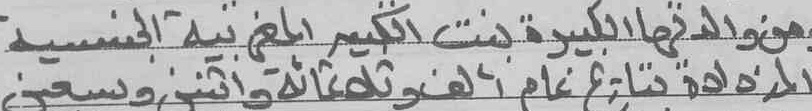 من والدتها الكبيرة بنت الكبير المغربية الجنسية
المزدادة بتاريخ عام ألف وثلاثمائة واثنين وسعين